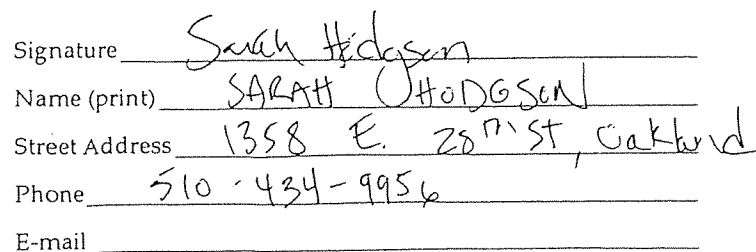 Signature Sarah Hodgson
Name (print) SARAH HODGSON
Street Address 1358 E. 28TH ST, Oakland
Phone 510-434-9956
E-mail